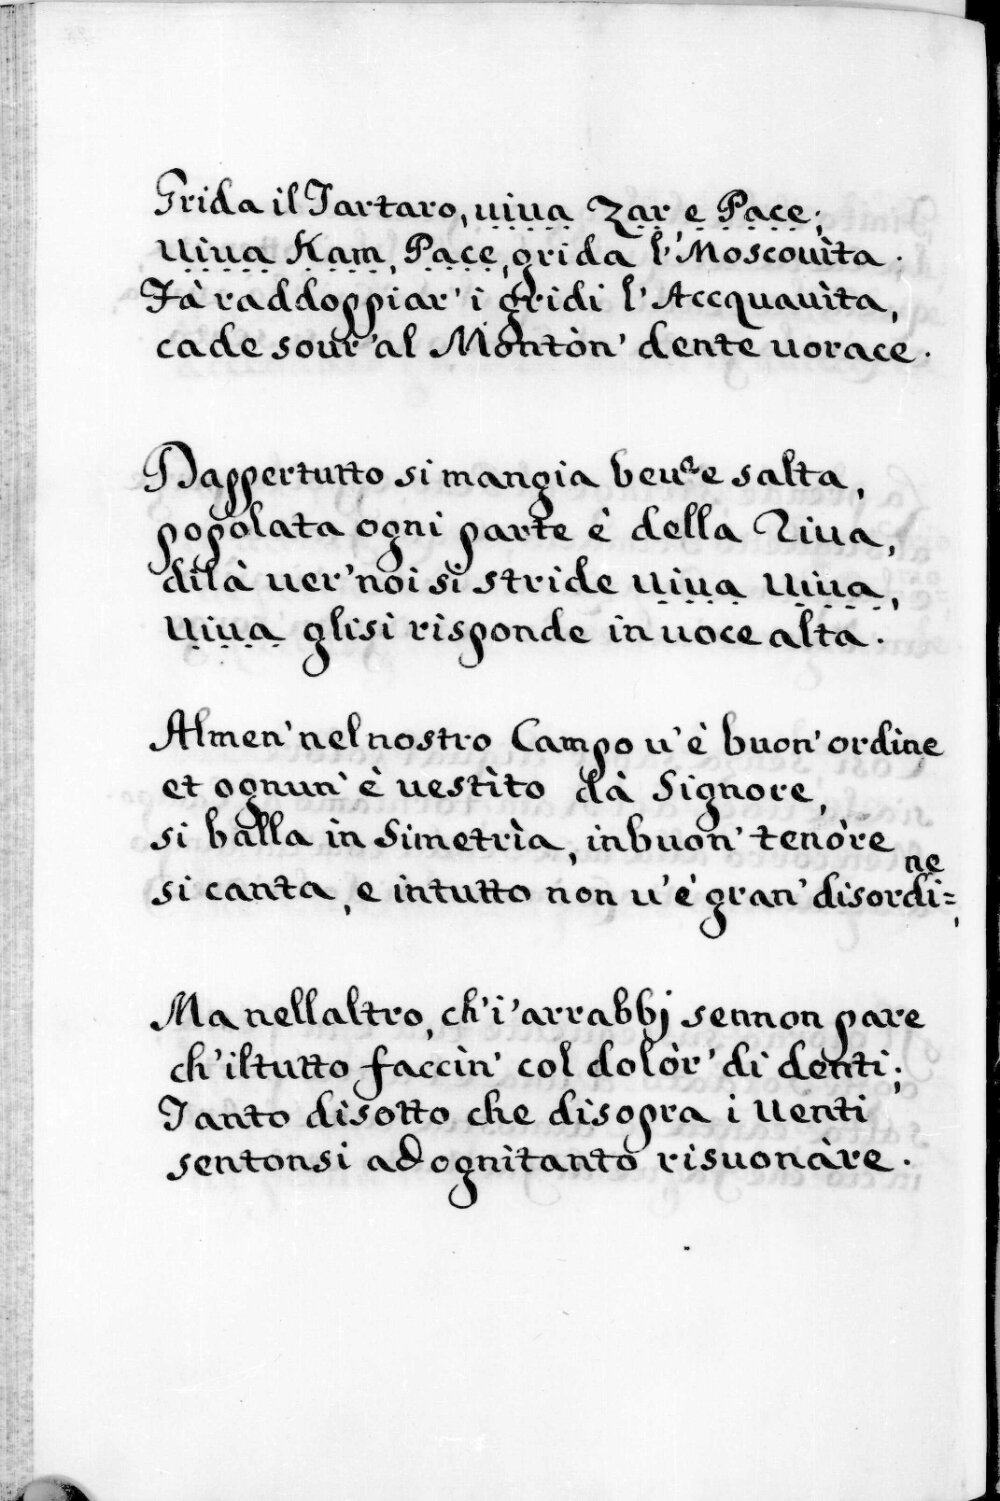 Grida il Tartaro, uiua Zar, e Pace;
Uiua Kam, Pace, grida l'Moscouìta.
Fà raddoppiar' i gridi l'Accquauìta,
cade sour' al Montòn' dente uorace.

Dappertutto si mangia beu^e e salta,
popolata ogni parte è della Riua,
dilà uer' noi si stride uiua uiua,
Uiua glisi risponde in uoce alta.

Almen' nel nostro Campo u'è buon' ordine
et ognun' è uestìto dà Signore,
si balla in Simetrìa, inbuon' tenòre
si canta, e intutto non u'è gran' disordi=ne,

Ma nellaltro, ch'i'arrabbj sennon pare
ch'iltutto faccin' col dolòr' di denti;
Tanto disotto che disopra i uenti
sentonsi adognitanto risuonàre.